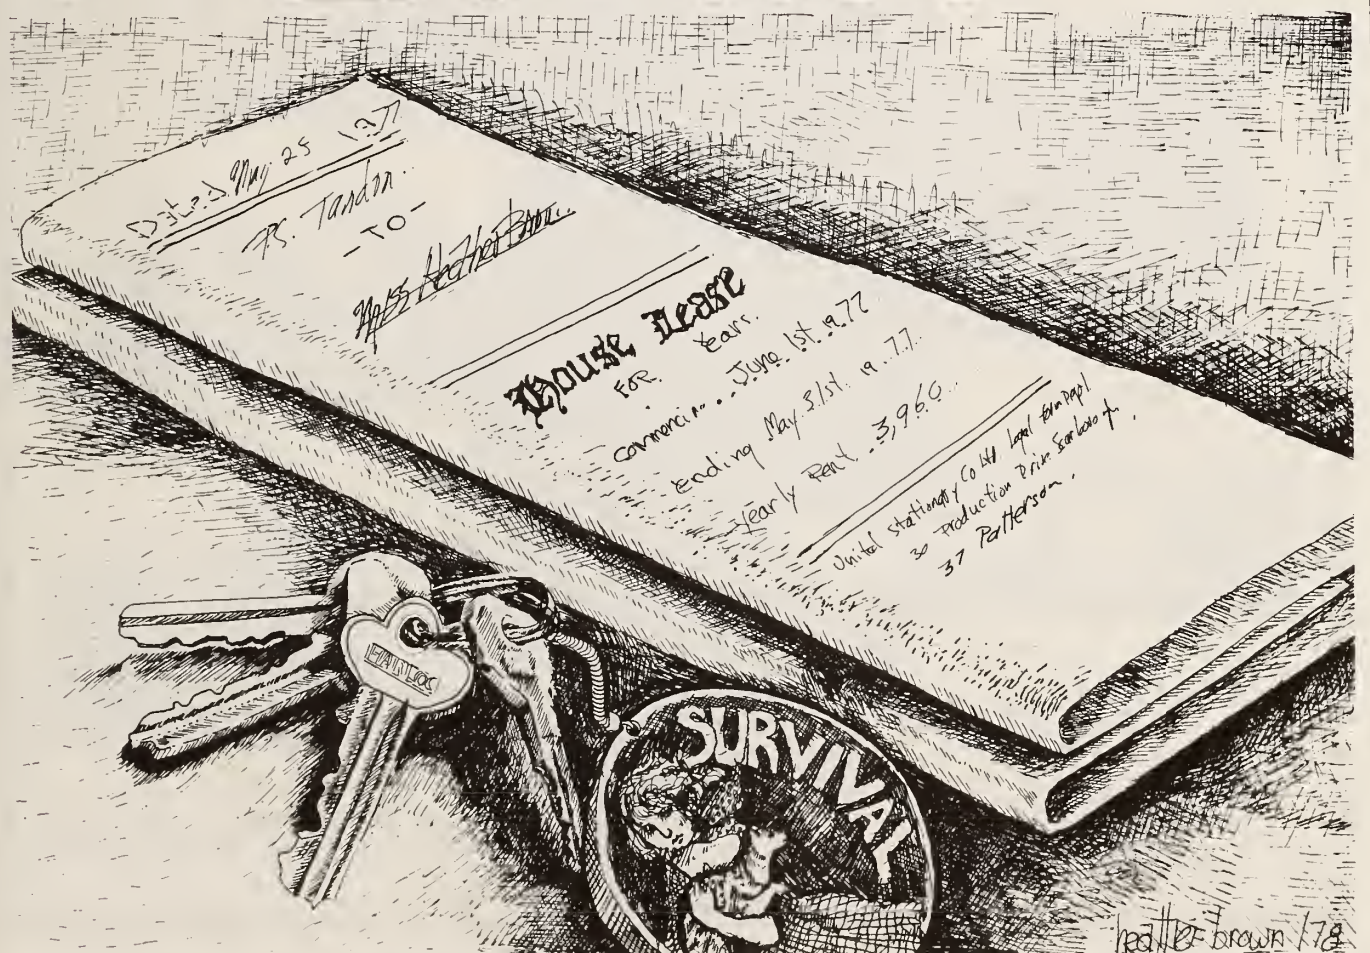 Dated May 25 1977
P.S. Tandon.
- TO -
Miss Heather
House Lease
FOR Years.
commencin... June 1st 1977
Ending May 31st. 19.77.
Yearly Rent. .3,960..
United Stationary Co Ltd Legal form Dept
30 Production Drive Scarborough.
37 Patterson.
SURVIVAL
heather brown /78